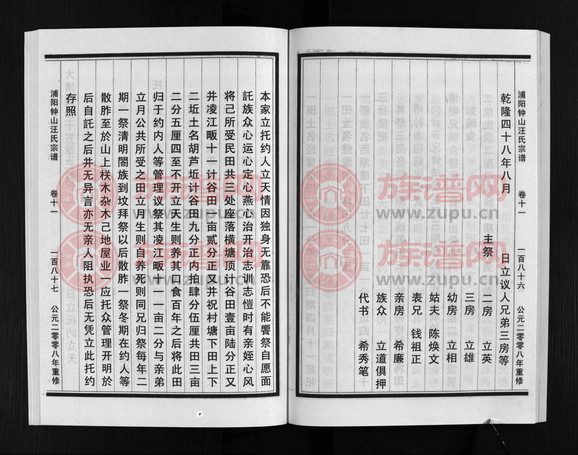 浦阳钟山汪氏宗谱 卷十一 一百八十六 公元二零零八年重修
乾隆四十八年八月 日立议人兄弟三房等
主祭 二房 立英
三房 立雄
幼房 立相
姑夫 陈焕文
表兄 钱祖正
亲房 希廉
族众 立道俱押
代书 希秀笔
本家立托约人立天情因独身无靠恐后不能饗祭自愿面
託族众心运心定心燕心治开治志训志愷时有亲姪心风
将己所受民田共三处座落横塘顶计谷田壹亩陆分正又
并凌江畈十一计谷田一亩贰分正又并祝村塘下田上下
二坵土名胡芦坵计谷田九分正内拍肆分伍厘共田三亩
二分五厘四至不开立天生则养其口食百年之后将此田
归于约内人等管理议祭其凌江畈十一一亩二分与亲弟
立月公共所受之田立月生则自养死则同兄归祭每年二
期一祭清明閤族到坟拜祭以后散胙一祭冬期在约人等
散胙至於山上样木杂木己地屋业一应托众管理开明於
后自託之后并无异言亦无亲人阻执恐后无凭立此托约
存照
浦阳钟山汪氏宗谱 卷十一 一百八十七 公元二零零八年重修
族谱网
www.zupu.cn
族谱网
www.zupu.cn